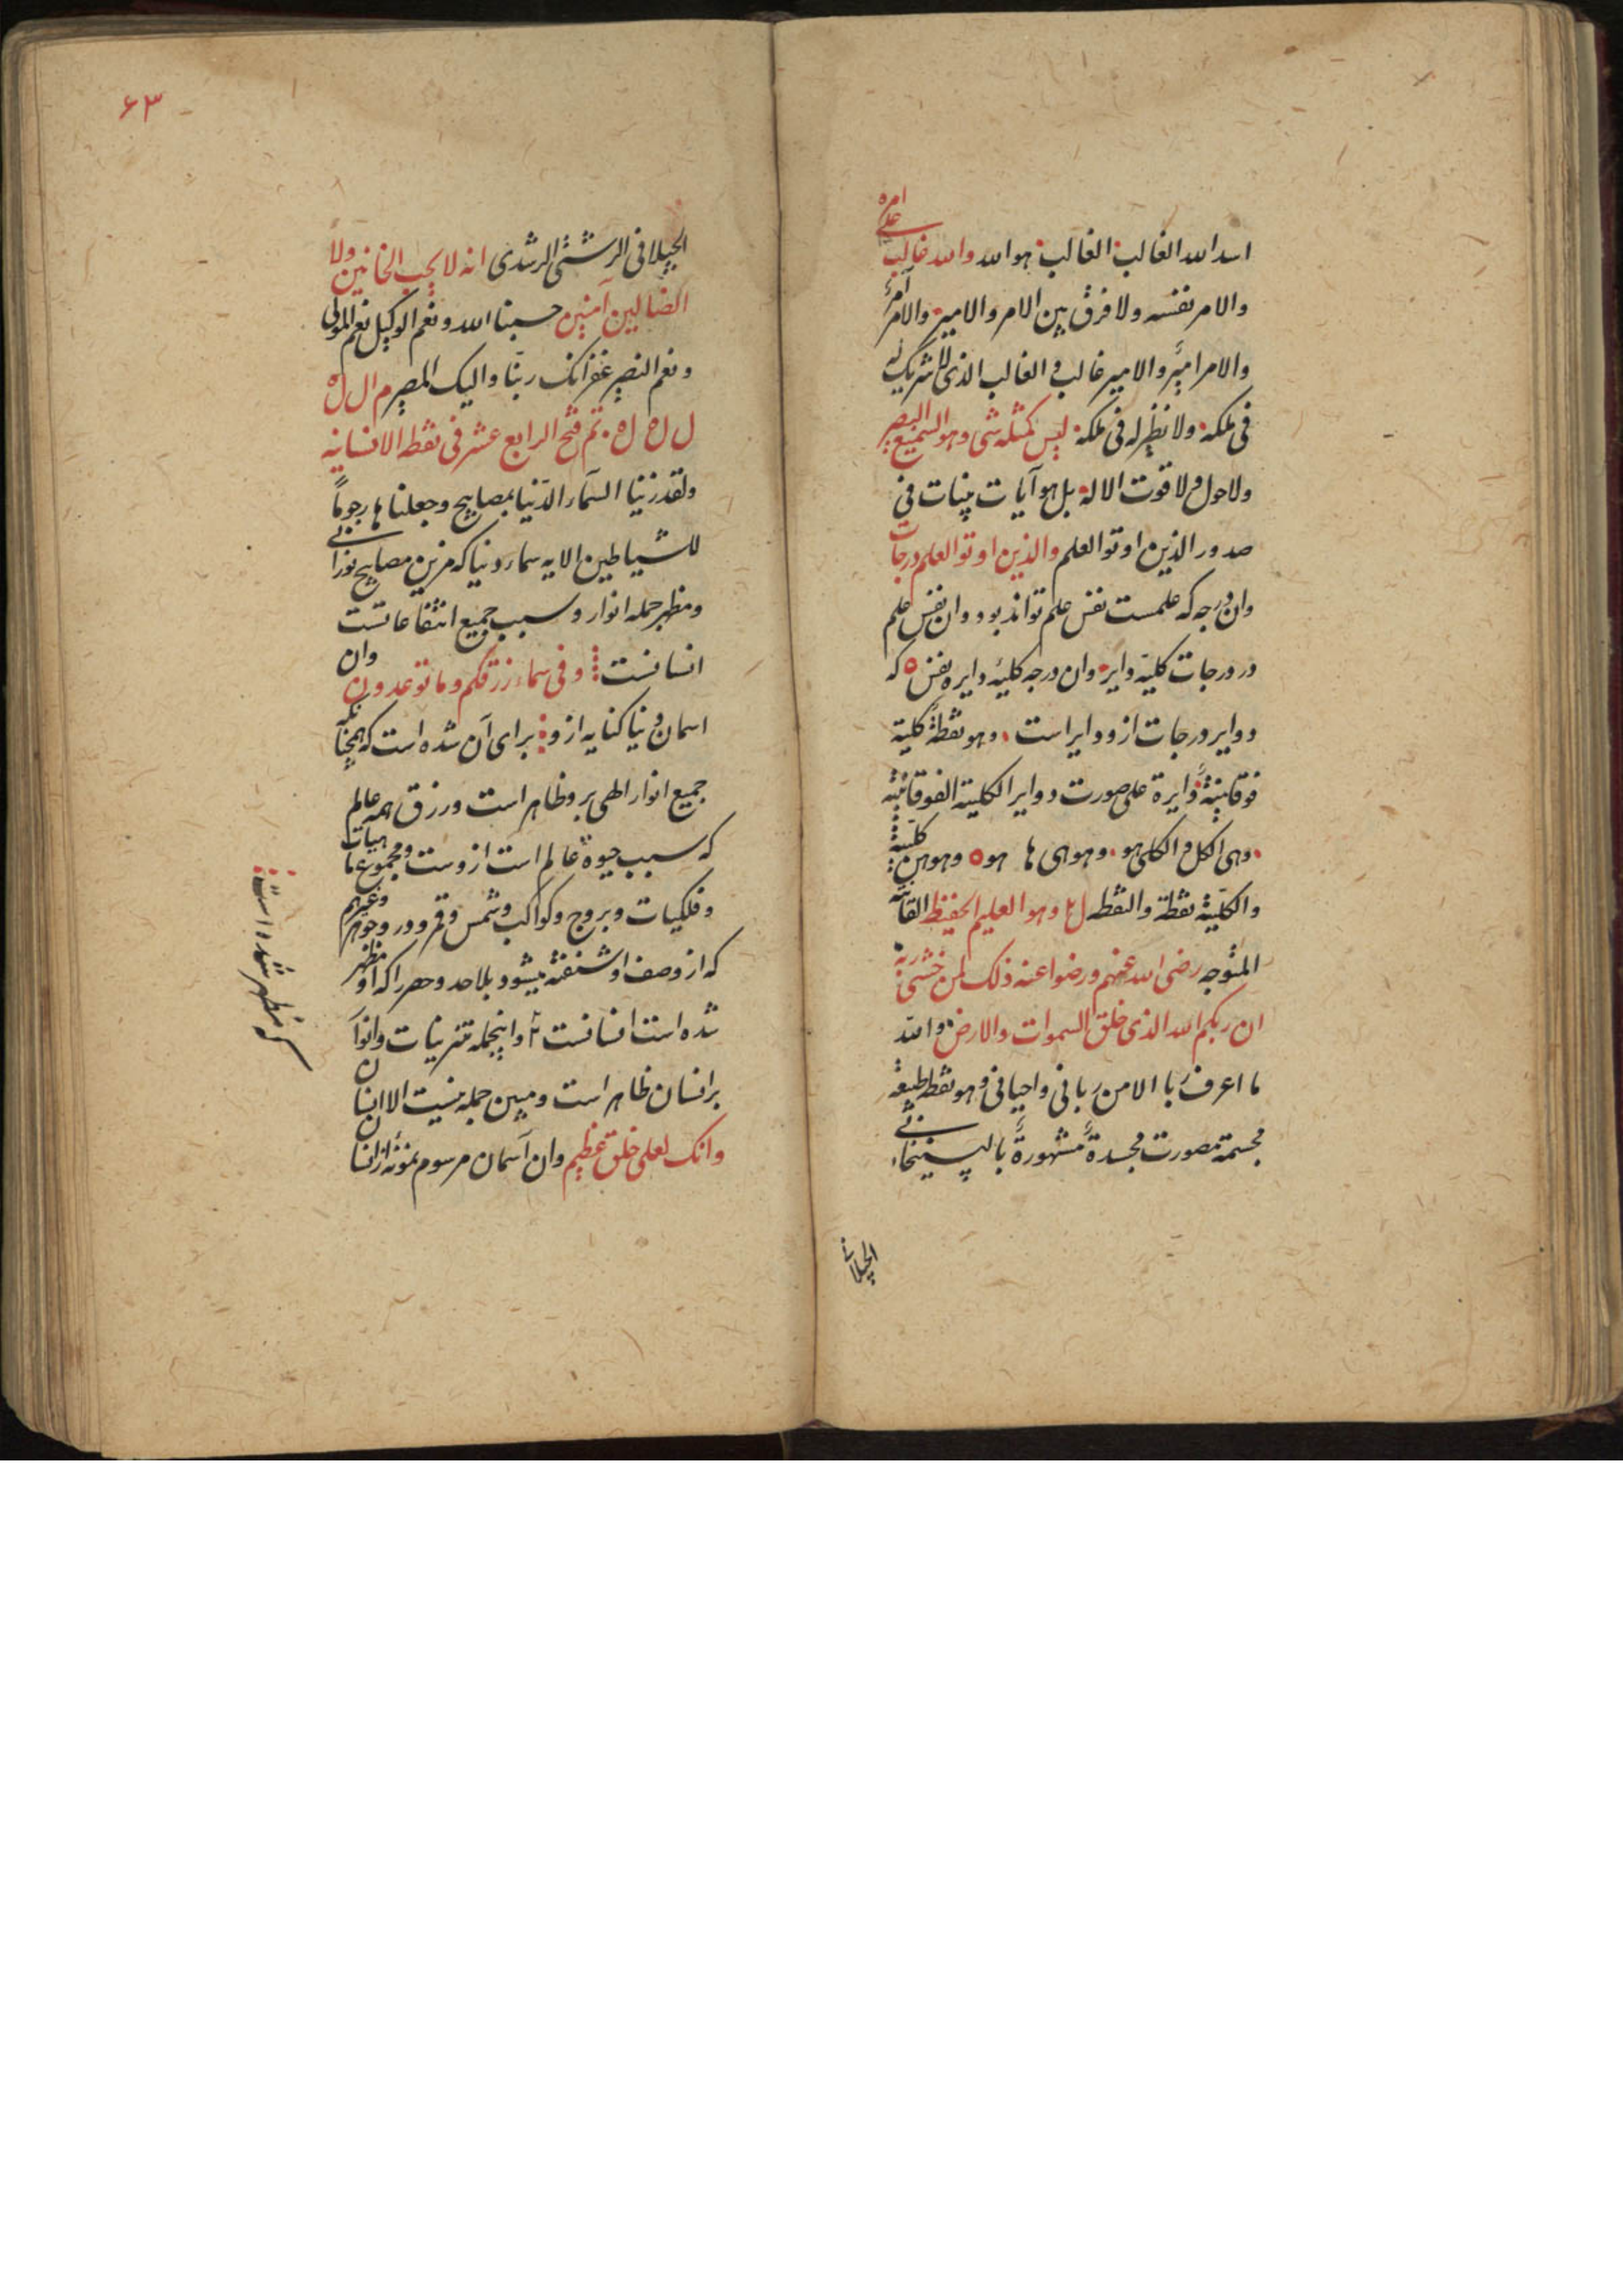 اسد الله الغالب الغالب هو الله والله غالب علی امره
والامر نفسه ولا فرق بین الامر والامیر والامر آمر
والامر امیر والامیر غالب و الغالب الذی لا شریک له
فی ملکه ولا نظیر له فی ملکه لیس کمثله شی وهو السمیع البصیر
ولا حول ولا قوت الا له بل هو آیات بینات فی
صدور الذین اوتو العلم والذین اوتو العلم درجات
وان درجه که علمست نفس علم تواند بود وان نفس علم
در درجات کلیّه دایر وان درجه کلیه دایره نفس ه که
دوایر درجات ازو دایر است وهو نقطة کلیة
فوقانیة دایرة علی صورت دوایر الکلیة الفوقانیة
وهی الکل و الکلی هو وهو هی ها هو ه وهو من کلیة
والکلیّة نقطة والنقطه وهو العلیم الحفیظ
المتوجه رضی الله عنهم ورضوا عنه ذلک لمن خشی ربه
ان ربکم الله الذی خلق السموات والارض والله
ما اعرف ربا الا من ربانی واحیانی وهو نقطه
مجسمة مصورت مجسدة مشهورة بالپسیخانی
الجیلانی
۶۳
الجیلانی الرشتی الرشدی انه لا یحب الخائنین ولا
الضالین آمین حسبنا الله ونعم الوکیل نعم المولی
ونعم النصیر غفرانک ربّنا والیک المصیر م ال ل ه
ل ل ه ل ه تم فتح الرابع عشر فی نقطه الانسانیه
ولقد زینا السماء الدنیا بمصابیح وجعلنا ها رجوماً
للشیاطین الایه سماء دنیا که مزین مصابیح نورانی
ومظهر جمله انوار وسبب جمیع انتفاعاتست
انسانست وفی سماء رزقکم وما توعدون وان
اسمان دنیا کنایه ازو برای آن شده است که همچنانکه
جمیع انوار الهی برو ظاهر است ورزق همه عالم
که سبب حیوة عالم است ازوست ومجموع ماهیات
وفلکیات وبروج وکواکب وشمس وقمر ودر وجوهر وغیرهم
که از وصف او شنفته میشود بلا حد وحصر را که او مظهر
شده است انسانست وانجمله تزیینات وانوار
بر انسان ظاهر است ومبین جمله نیست الا انسان
وانک لعلی خلق عظیم وان آسمان مرسوم نمونه از انسان
که مظهر شده است